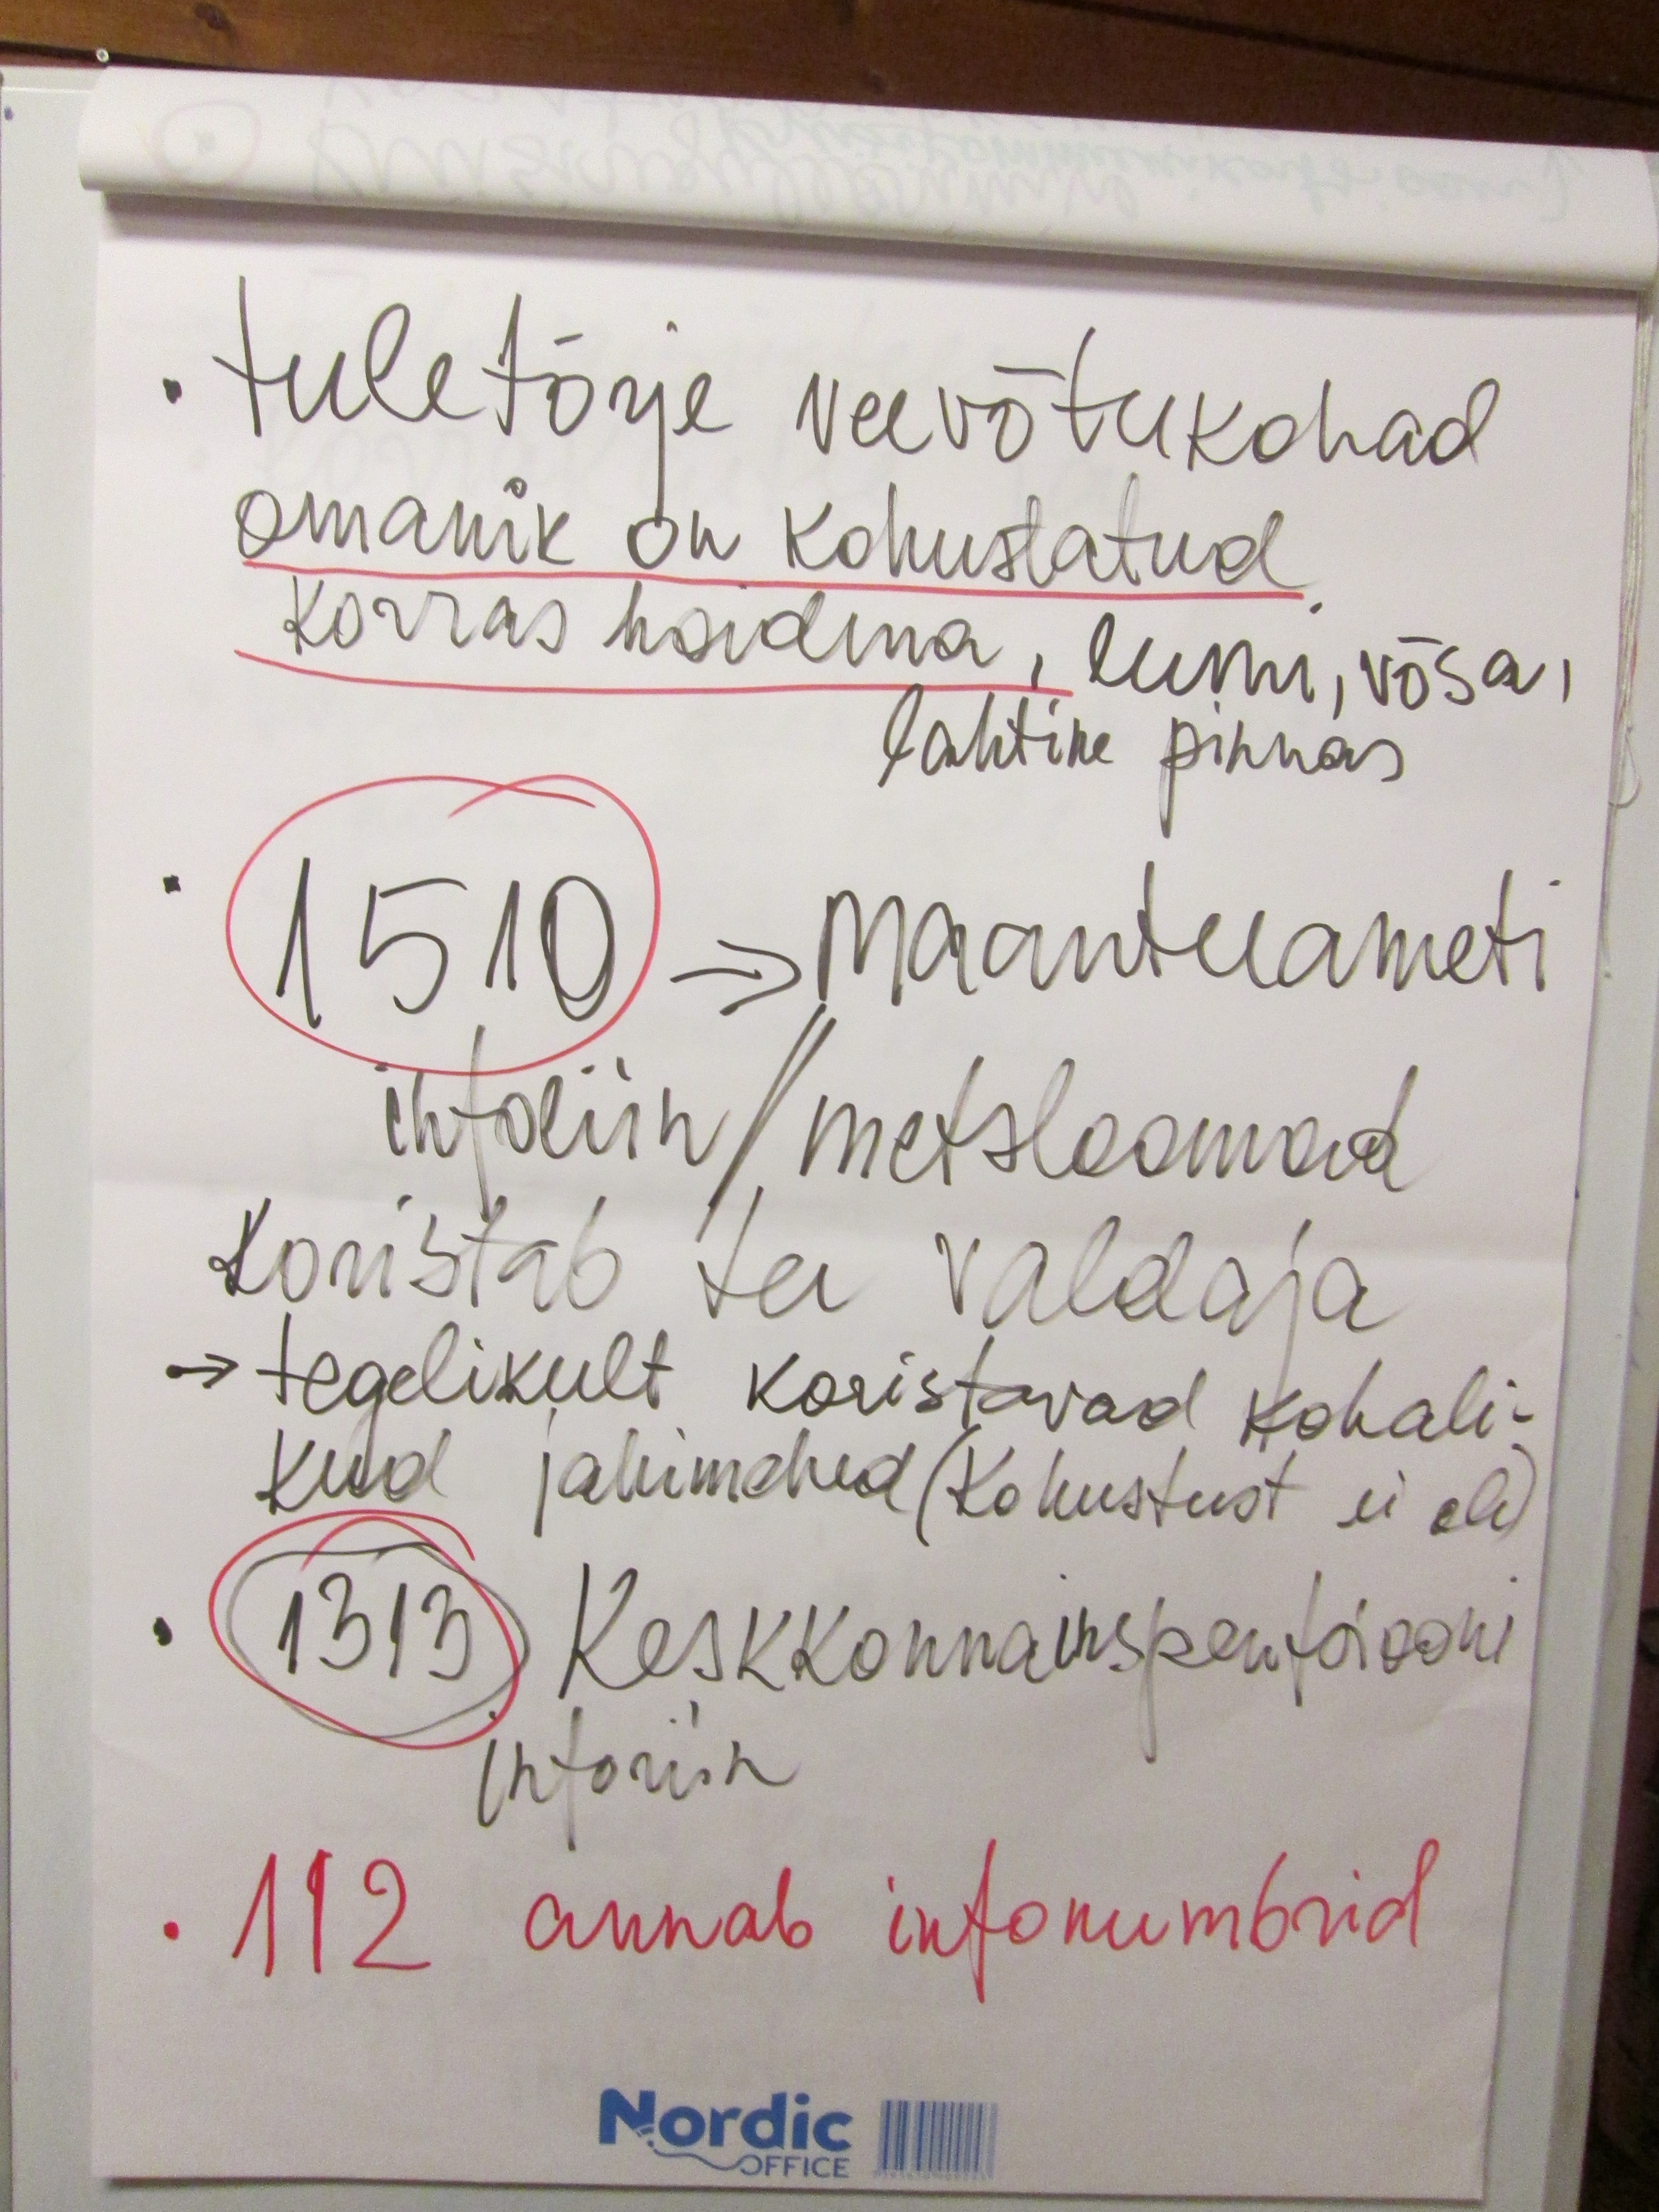 • tuletõrje veevõtukohad
omanik on kohustatud
korras hoidma, lumi, võsa,
lahtine pinnas
• 1510 → Maanteeameti
infoliin / metsloomad
koristab tee valdaja
→ tegelikult koristavad kohali-
kud jahimehed (kohustust ei ole)
• 1313 Keskkonnainspentsiooni
inforiin
• 112 annab infonumbrid
Nordic
OFFICE